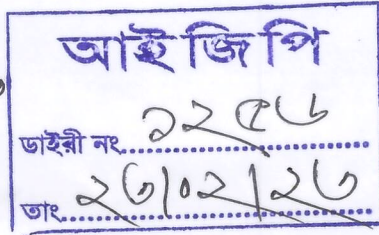 আই জি পি
ডাইরী নং ১২৫৬
তাং ২৩|০২|২৩